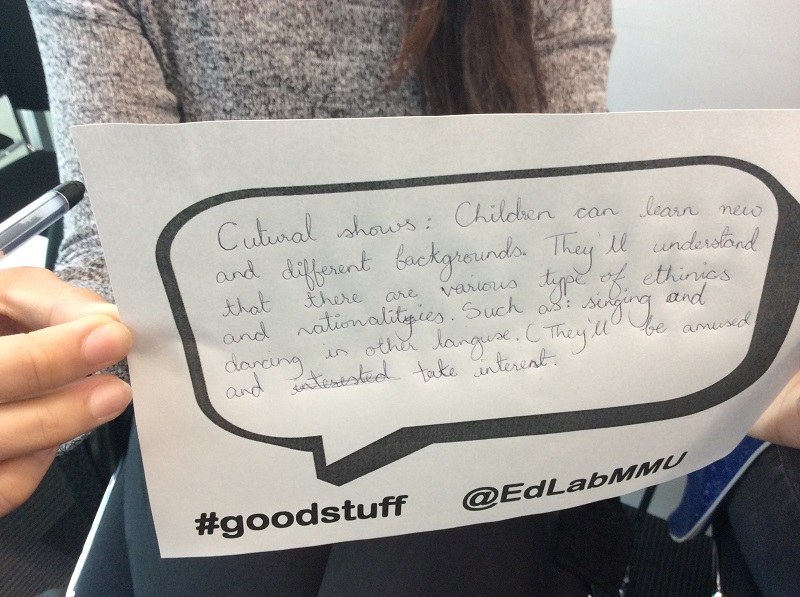 Cutural shows: Children can learn new
and different backgrounds. They'll understand
that there are various type of ethinics
and nationalityies. Such as: singing and
dancing in other languse. (They'll be amused
and interested take interest.
#goodstuff @EdLabMMU